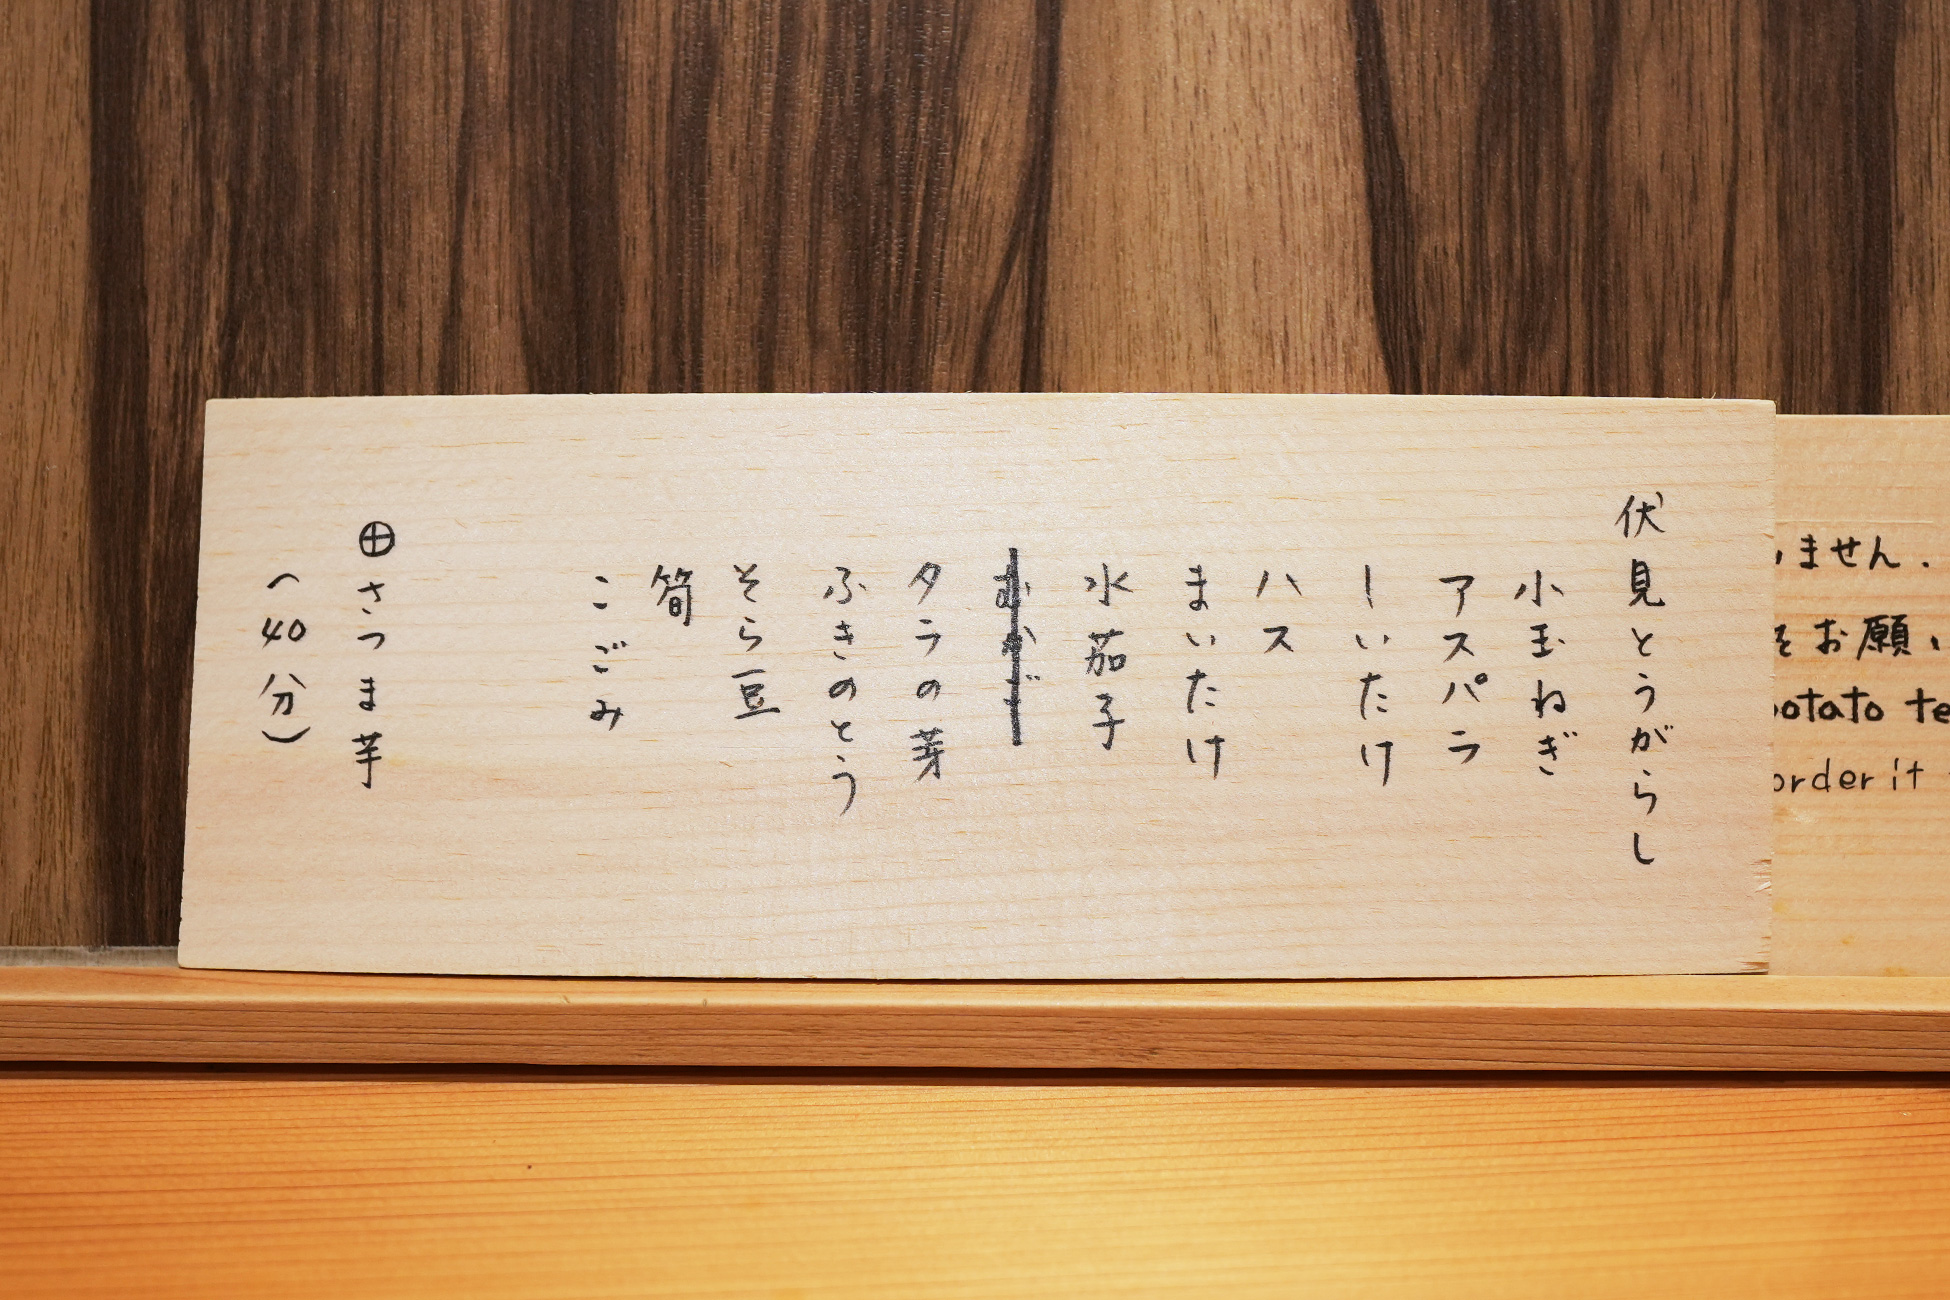 伏見とうがらし
小玉ねぎ
アスパラ
しいたけ
ハス
まいたけ
水茄子
タラの芽
ふきのとう
そら豆
筍
こごみ
⊕さつま芋
(40分)
ません.
をお願い
potato te
order it